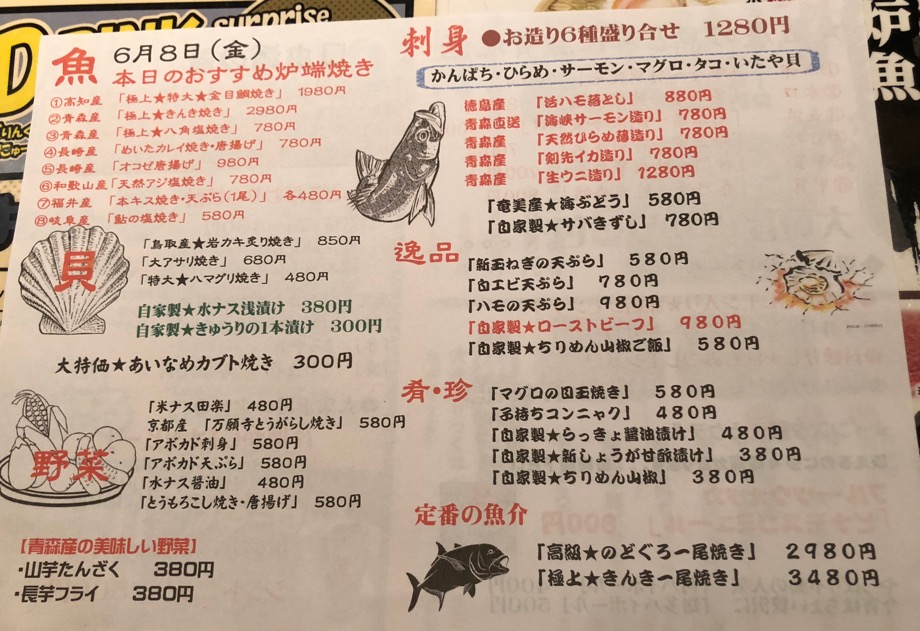 surprise
魚 6月8日(金)
本日のおすすめ炉端焼き
①高知産 「極上★特大★金目鯛焼き」 1980円
②青森産 「極上★きんき焼き」 2980円
③青森産 「極上★八角塩焼き」 780円
④長崎産 「めいたカレイ焼き・唐揚げ」 780円
⑤長崎産 「オコゼ唐揚げ」 980円
⑥和歌山産「天然アジ塩焼き」 780円
⑦福井産 「本キス焼き・天ぷら(1尾)」 各480円
⑧岐阜産 「鮎の塩焼き」 580円
貝
「鳥取産★岩カキ炙り焼き」 850円
「大アサリ焼き」 680円
「特大★ハマグリ焼き」 480円
自家製★水ナス浅漬け 380円
自家製★きゅうりの1本漬け 300円
大特価★あいなめカブト焼き 300円
野菜
「米ナス田楽」 480円
京都産 「万願寺とうがらし焼き」 580円
「アボカド刺身」 580円
「アボカド天ぷら」 580円
「水ナス醤油」 480円
「とうもろこし焼き・唐揚げ」 580円
【青森産の美味しい野菜】
・山芋たんざく 380円
・長芋フライ 380円
刺身 ●お造り6種盛り合せ 1280円
かんぱち・ひらめ・サーモン・マグロ・タコ・いたや貝
徳島産 「活ハモ落とし」 880円
青森直送 「海峡サーモン造り」 780円
青森産 「天然ひらめ薄造り」 780円
青森産 「剣先イカ造り」 780円
青森産 「生ウニ造り」 1280円
「奄美産★海ぶどう」 580円
「自家製★サバきずし」 780円
逸品
「新玉ねぎの天ぷら」 580円
「白エビ天ぷら」 780円
「ハモの天ぷら」 980円
「自家製★ローストビーフ」 980円
「自家製★ちりめん山椒ご飯」 580円
肴・珍
「マグロの目玉焼き」 580円
「子持ちコンニャク」 480円
「自家製★らっきょ醤油漬け」 480円
「自家製★新しょうが甘酢漬け」 380円
「自家製★ちりめん山椒」 380円
定番の魚介
「高級★のどぐろ一尾焼き」 2980円
「極上★きんき一尾焼き」 3480円
炉魚